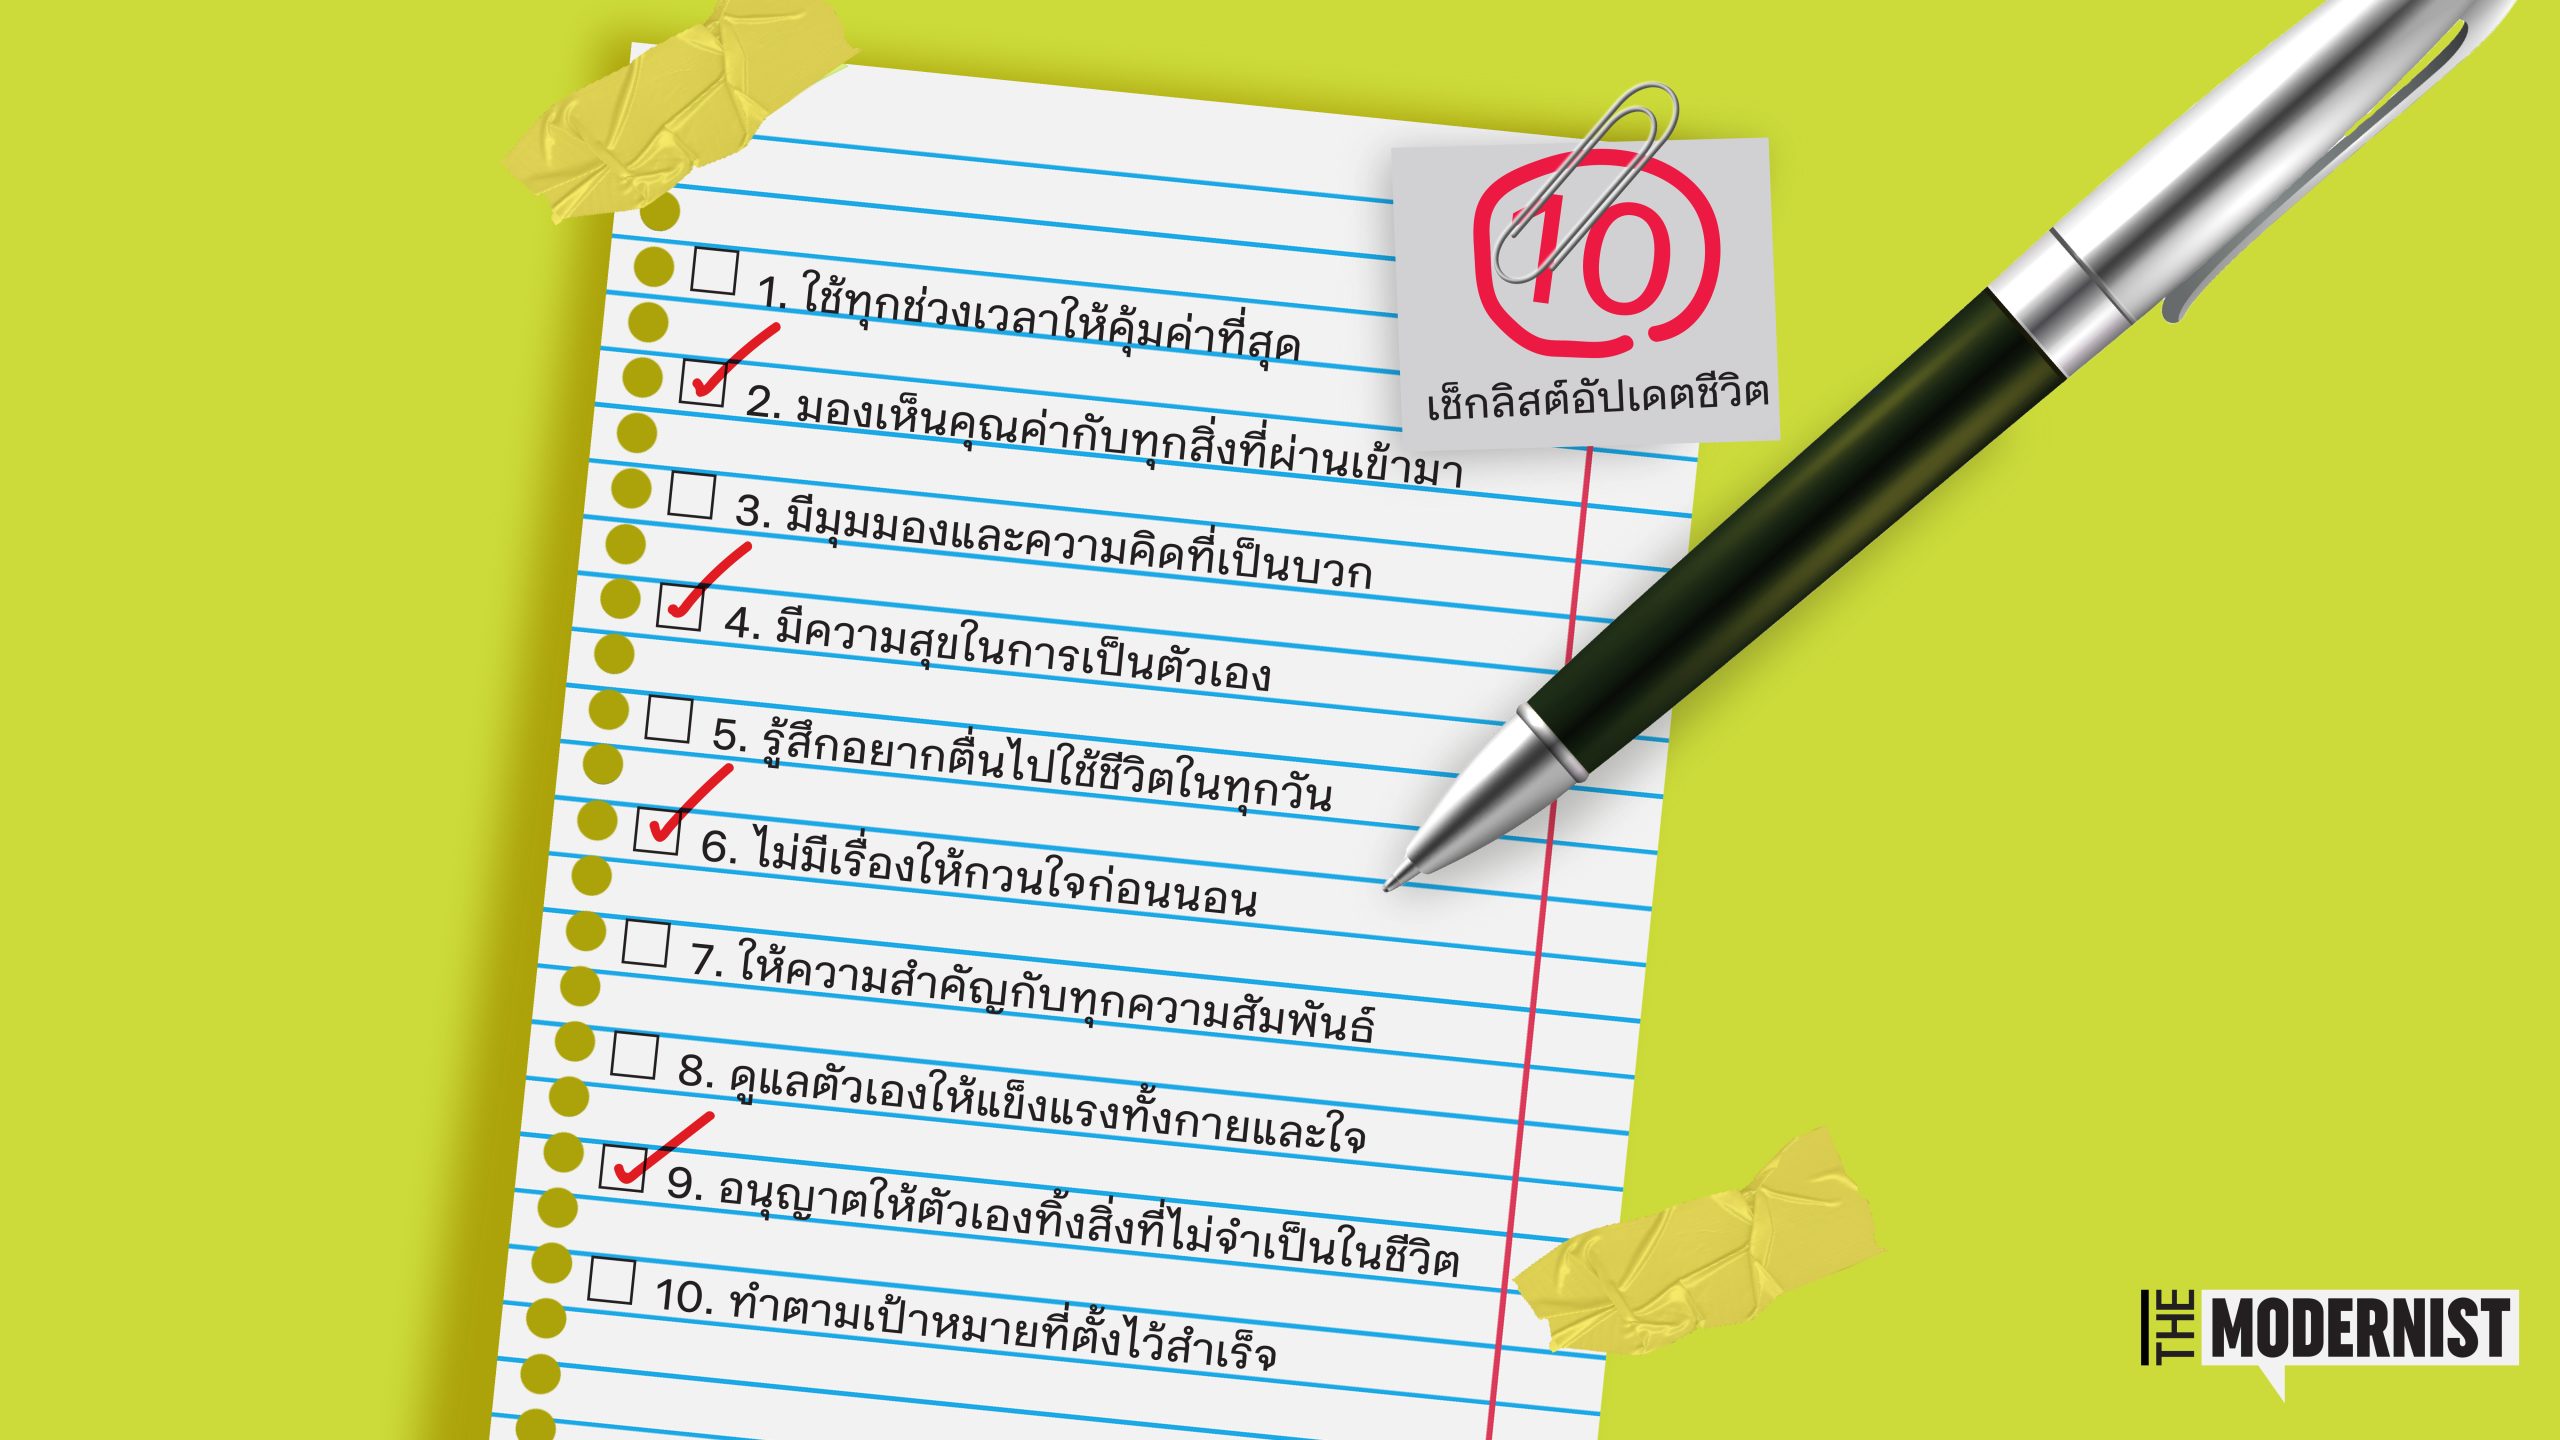 10
เช็กลิสต์อัปเดตชีวิต
1. ใช้ทุกช่วงเวลาให้คุ้มค่าที่สุด
2. มองเห็นคุณค่ากับทุกสิ่งที่ผ่านเข้ามา
3. มีมุมมองและความคิดที่เป็นบวก
4. มีความสุขในการเป็นตัวเอง
5. รู้สึกอยากตื่นไปใช้ชีวิตในทุกวัน
6. ไม่มีเรื่องให้กวนใจก่อนนอน
7. ให้ความสำคัญกับทุกความสัมพันธ์
8. ดูแลตัวเองให้แข็งแรงทั้งกายและใจ
9. อนุญาตให้ตัวเองทิ้งสิ่งที่ไม่จำเป็นในชีวิต
10. ทำตามเป้าหมายที่ตั้งไว้สำเร็จ
THE MODERNIST